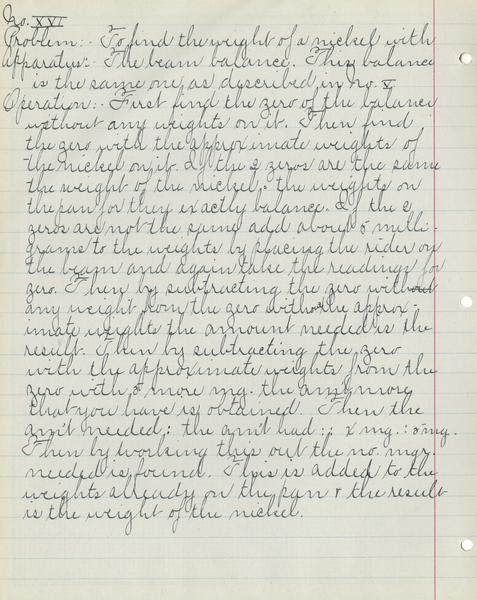 No. XVI
Problem:- To find the weight of a nickel with
Apparatus:- The beam balance. This balance
is the same one as described in No. V
Operation:- First find the zero of the balance
without any weights on it. Then find
the zero with the approximate weights of
the nickel on it. If the 2 zeros are the same
the weight of the nickel = the weights on
the pan for they exactly balance. If the 2
zeros are not the same add about 5 milli-
grams to the weights by placing the rider on
the beam and again take the readings for
zero. Then by subtracting the zero without
any weight from the zero with the approx-
imate weights the amount needed is the
result. Then by subtracting the zero
with the approximate weights from the
zero with 5 more mg. the am't more
that you have is obtained. Then the
am't needed : the am't had :: x mg. : 5 mg.
Then by working this out the no. mgs.
needed is found. This is added to the
weights already on the pan & the result
is the weight of the nickel.